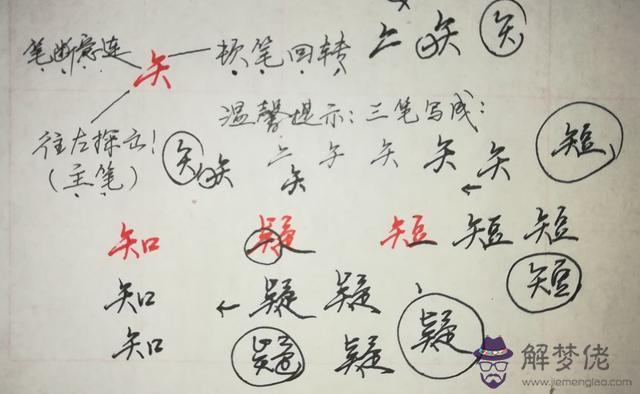 笔断意连 矢 顿笔回转 矢 矢
往左探出!
(主笔)
温馨提示:三笔写成:
矢 矢 矢 矢 矢 短
矢
知 疑 短 短 短
知 疑 疑 短
知 疑 疑 疑
解梦佬
www.jiemenglao.com